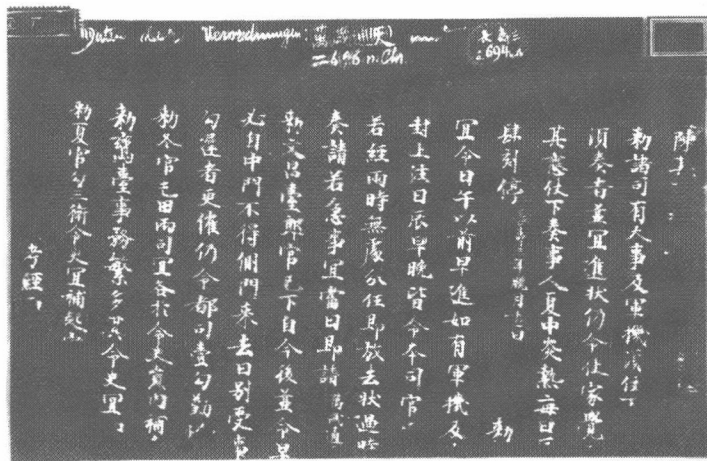 Verordnungen:
696 n.Chr.
長壽三
694
勅諸司有大事及軍機須仗下
須奏者並宜進狀仍令仗家覺
其應仗下奏事人夏中炎熱每日
肆刻停 長壽三年臘月十一日 勅
宜令日午以前早進如有軍機及
封上注日辰早晚皆令本司官
若經兩時無處分任即放去狀過時
奏請若急事宜當日即請
勅文昌臺郎官已下自今後並令早
必自中門不得側門來去日別受事
勾遲者更催仍令都司壹勾勒以
勅冬官屯田兩司宜各於令史員內補
勅鸞臺事務繁多其令史宜
勅夏官勾三衛令史宜補起
考經